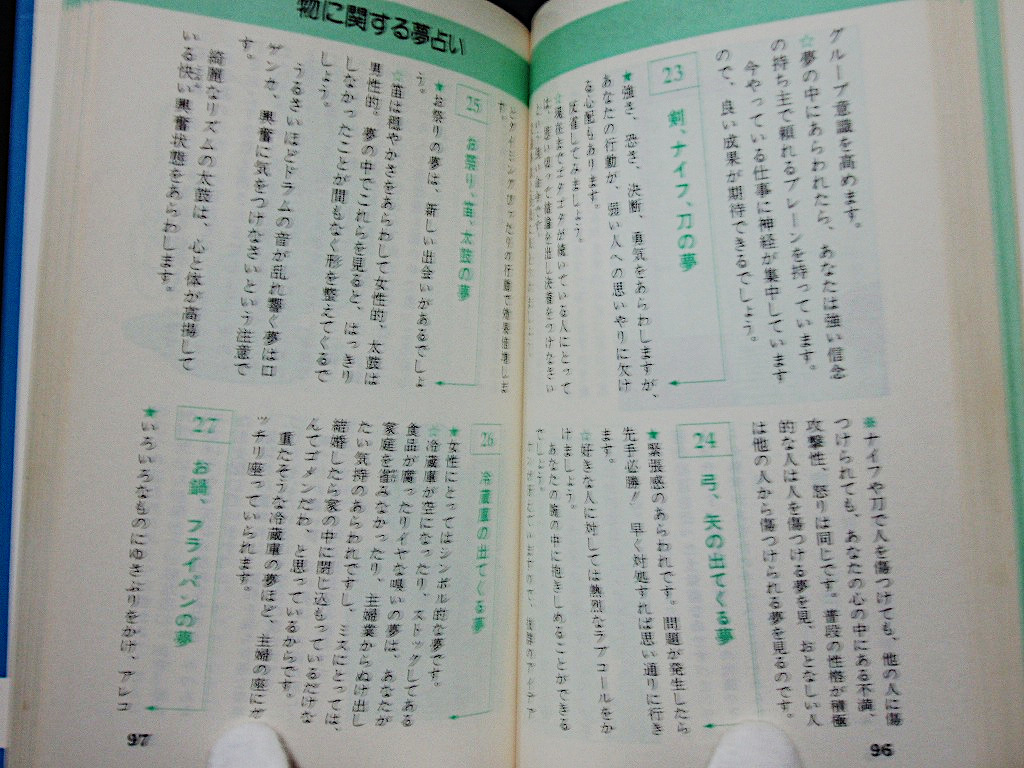 グループ意識を高めます。
☆夢の中にあらわれたら、あなたは強い信念
の持ち主で頼れるブレーンを持っています。
今やっている仕事に神経が集中しています
ので、良い成果が期待できるでしょう。
23
剣、ナイフ、刀の夢
★強さ、恐さ、決断、勇気をあらわしますが、
あなたの行動が、弱い人への思いやりに欠け
る心配もあります。
反省してみましょう。
☆現在まだモタモタが続いている人にとって
は、思い切って結論を出し決着をつけなさい
※ナイフや刀で人を傷つけても、他の人に傷
つけられても、あなたの心の中にある不満、
攻撃性、怒りは同じです。普段の性格が積極
的な人は人を傷つける夢を見、おとなしい人
は他の人から傷つけられる夢を見るのです。
24
弓、矢の出てくる夢
★緊張感のあらわれです。問題が発生したら
先手必勝!! 早く対処すれば思い通りに行き
ます。
☆好きな人に対しては熱烈なラブコールをか
けましょう。
あなたの腕の中に抱きしめることができる
でしょう。
96
物に関する夢占い
25
お祭り、笛、太鼓の夢
★お祭りの夢は、新しい出会いがあるでしょ
う。
☆笛は穏やかさをあらわして女性的、太鼓は
男性的。夢の中でこれらを見ると、はっきり
しなかったことが間もなく形を整えてくるで
しょう。
うるさいほどドラムの音が乱れ響く夢はロ
ゲンカ、興奮に気をつけなさいという注意で
す。
綺麗なリズムの太鼓は、心と体が高揚して
いる快い興奮状態をあらわします。
26
冷蔵庫の出てくる夢
★女性にとってはシンボル的な夢です。
☆冷蔵庫が空になったり、ストックしてある
食品が腐ったりイヤな嗅いの夢は、あなたが
家庭を顧みなかったり、主婦業からぬけ出し
たい気持のあらわれですし、ミズにとっては、
結婚したら家の中に閉じ込もっているだけな
んてゴメンだわ、と思っているからです。
重たそうな冷蔵庫の夢ほど、主婦の座にガ
ッチリ座っていられます。
27
お鍋、フライパンの夢
★いろいろなものにゆさぶりをかけ、アレコ
97